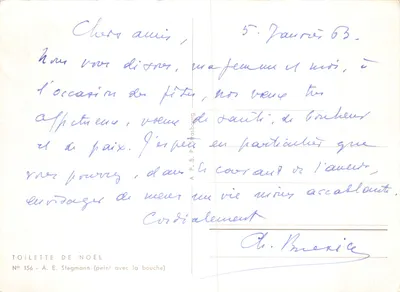 Chers amis, 5. Janvier 63.
Nous vous disons, ma femme et moi, à
l'occasion des fêtes, nos vœux très
affectueux, vœux de santé, de bonheur
et de paix. J'espère en particulier que
vous pourrez, dans le courant de l'année,
envisager de mener une vie moins accablante.
Cordialement
Ch.
TOILETTE DE NOËL
N° 156 - A. E. Stegmann (peint avec la bouche)